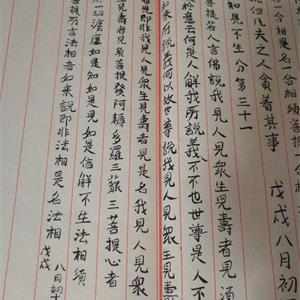 合相是名一合相須
但凡夫之人貪著其事 戊戌八月初
知見不生分第三十一
菩提若人言佛說我見人見眾生見壽者見須
於意云何是人解我所說義不不也世尊是人不
來所說義何以故世尊說我見人見眾生見壽
見即非我見人見眾生見壽者見是名我見人見眾
見壽者見須菩提發阿耨多羅三藐三菩提心者
一切法應如是知如是見如是信解不生法相須
菩提所言法相者如來說即非法相是名法相 戊戌 八月初